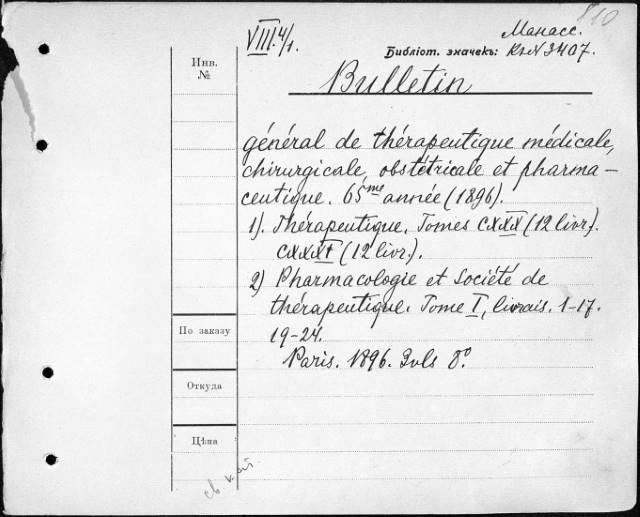 810
Манасс.
VIII.4/1.
Библіот. значекъ: Кн№3407.
Инв.
№
Bulletin
général de thérapeutique médicale,
chirurgicale, obstétricale et pharma-
ceutique. 65me année (1896).
1). Thérapeutique. Tomes CXXX (12 livr.).
CXXXI (12 livr.).
2) Pharmacologie et Société de
thérapeutique. Tome I, livrais. 1-17.
19-24.
Paris. 1896. 3vls 8°.
По заказу
Откуда
Цѣна
св. кат.